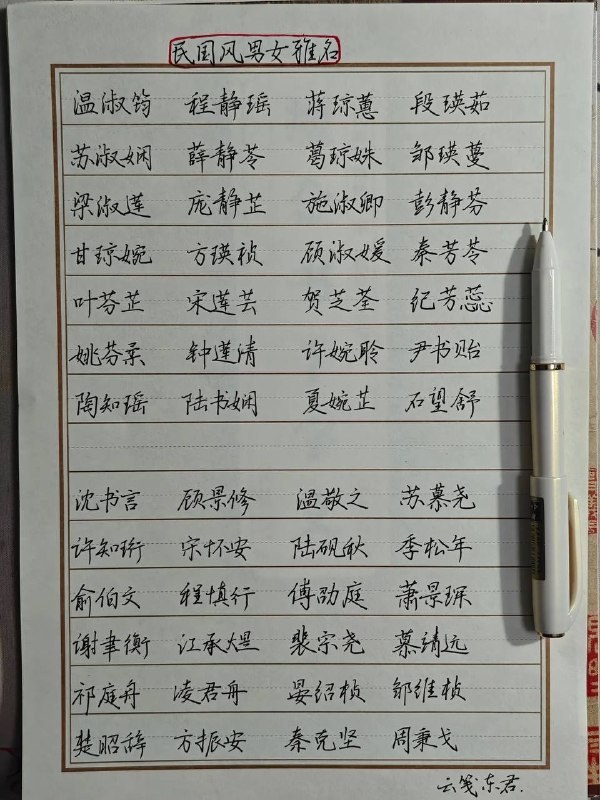 民国风男女雅名
温淑筠 程静瑶 蒋琼蕙 段瑛茹
苏淑娴 薛静苓 葛琼姝 邹瑛蔓
梁淑莲 庞静芷 施淑卿 彭静芬
甘琼婉 方瑛桢 顾淑媛 秦芳苓
叶芬芷 宋莲芸 贺芝荃 纪芳蕊
姚芬柔 钟莲清 许婉聆 尹书贻
陶知瑶 陆书娴 夏婉芷 石望舒
沈书言 顾景修 温敬之 苏慕尧
许知珩 宋怀安 陆砚秋 季松年
俞伯文 程慎行 傅劭庭 萧景琛
谢聿衡 江承煜 裴宗尧 慕靖远
祁庭舟 凌君舟 晏绍桢 邹维桢
楚昭辞 方振安 秦克坚 周秉戈
云笺东君.